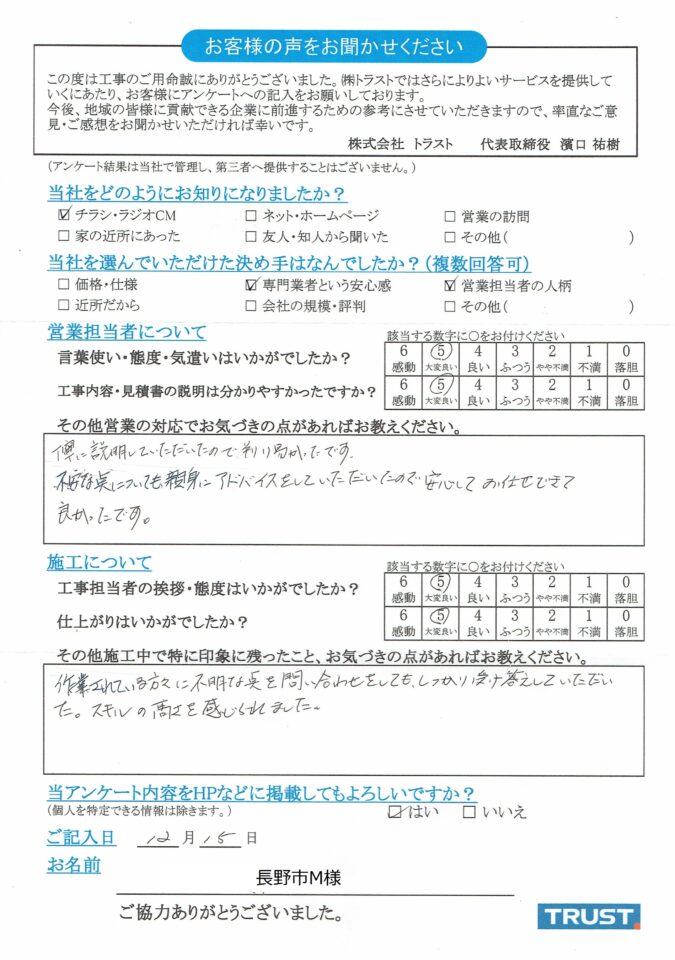 お客様の声をお聞かせください
この度は工事のご用命誠にありがとうございました。㈱トラストではさらによりよいサービスを提供して
いくにあたり、お客様にアンケートへの記入をお願いしております。
今後、地域の皆様に貢献できる企業に前進するための参考にさせていただきますので、率直なご意
見・ご感想をお聞かせいただければ幸いです。
株式会社 トラスト 代表取締役 濱口 祐樹
(アンケート結果は当社で管理し、第三者へ提供することはございません。)
当社をどのようにお知りになりましたか？
☑ チラシ・ラジオCM □ ネット・ホームページ □ 営業の訪問
□ 家の近所にあった □ 友人・知人から聞いた □ その他( )
当社を選んでいただけた決め手はなんでしたか？(複数回答可)
□ 価格・仕様 ☑ 専門業者という安心感 ☑ 営業担当者の人柄
□ 近所だから □ 会社の規模・評判 □ その他( )
営業担当者について
該当する数字に○をお付けください
言葉使い・態度・気遣いはいかがでしたか？
6 5 4 3 2 1 0
感動 大変良い 良い ふつう やや不満 不満 落胆
工事内容・見積書の説明は分かりやすかったですか？
6 5 4 3 2 1 0
感動 大変良い 良い ふつう やや不満 不満 落胆
その他営業の対応でお気づきの点があればお教えください。
に説明していただいたので判り易かったです。
な点についても親身にアドバイスをしていただいたので安心してお任せできて
良かったです。
施工について
該当する数字に○をお付けください
工事担当者の挨拶・態度はいかがでしたか？
6 5 4 3 2 1 0
感動 大変良い 良い ふつう やや不満 不満 落胆
仕上がりはいかがでしたか？
6 5 4 3 2 1 0
感動 大変良い 良い ふつう やや不満 不満 落胆
その他施工中で特に印象に残ったこと、お気づきの点があればお教えください。
作業されている方々に不明な点を問い合わせをしても、しっかり受け答えしていただい
た。スキルの高さを感じられました。
当アンケート内容をHPなどに掲載してもよろしいですか？
(個人を特定できる情報は除きます。) ☑はい □ いいえ
ご記入日 12 月 15 日
お名前
長野市M様
ご協力ありがとうございました。
TRUST.